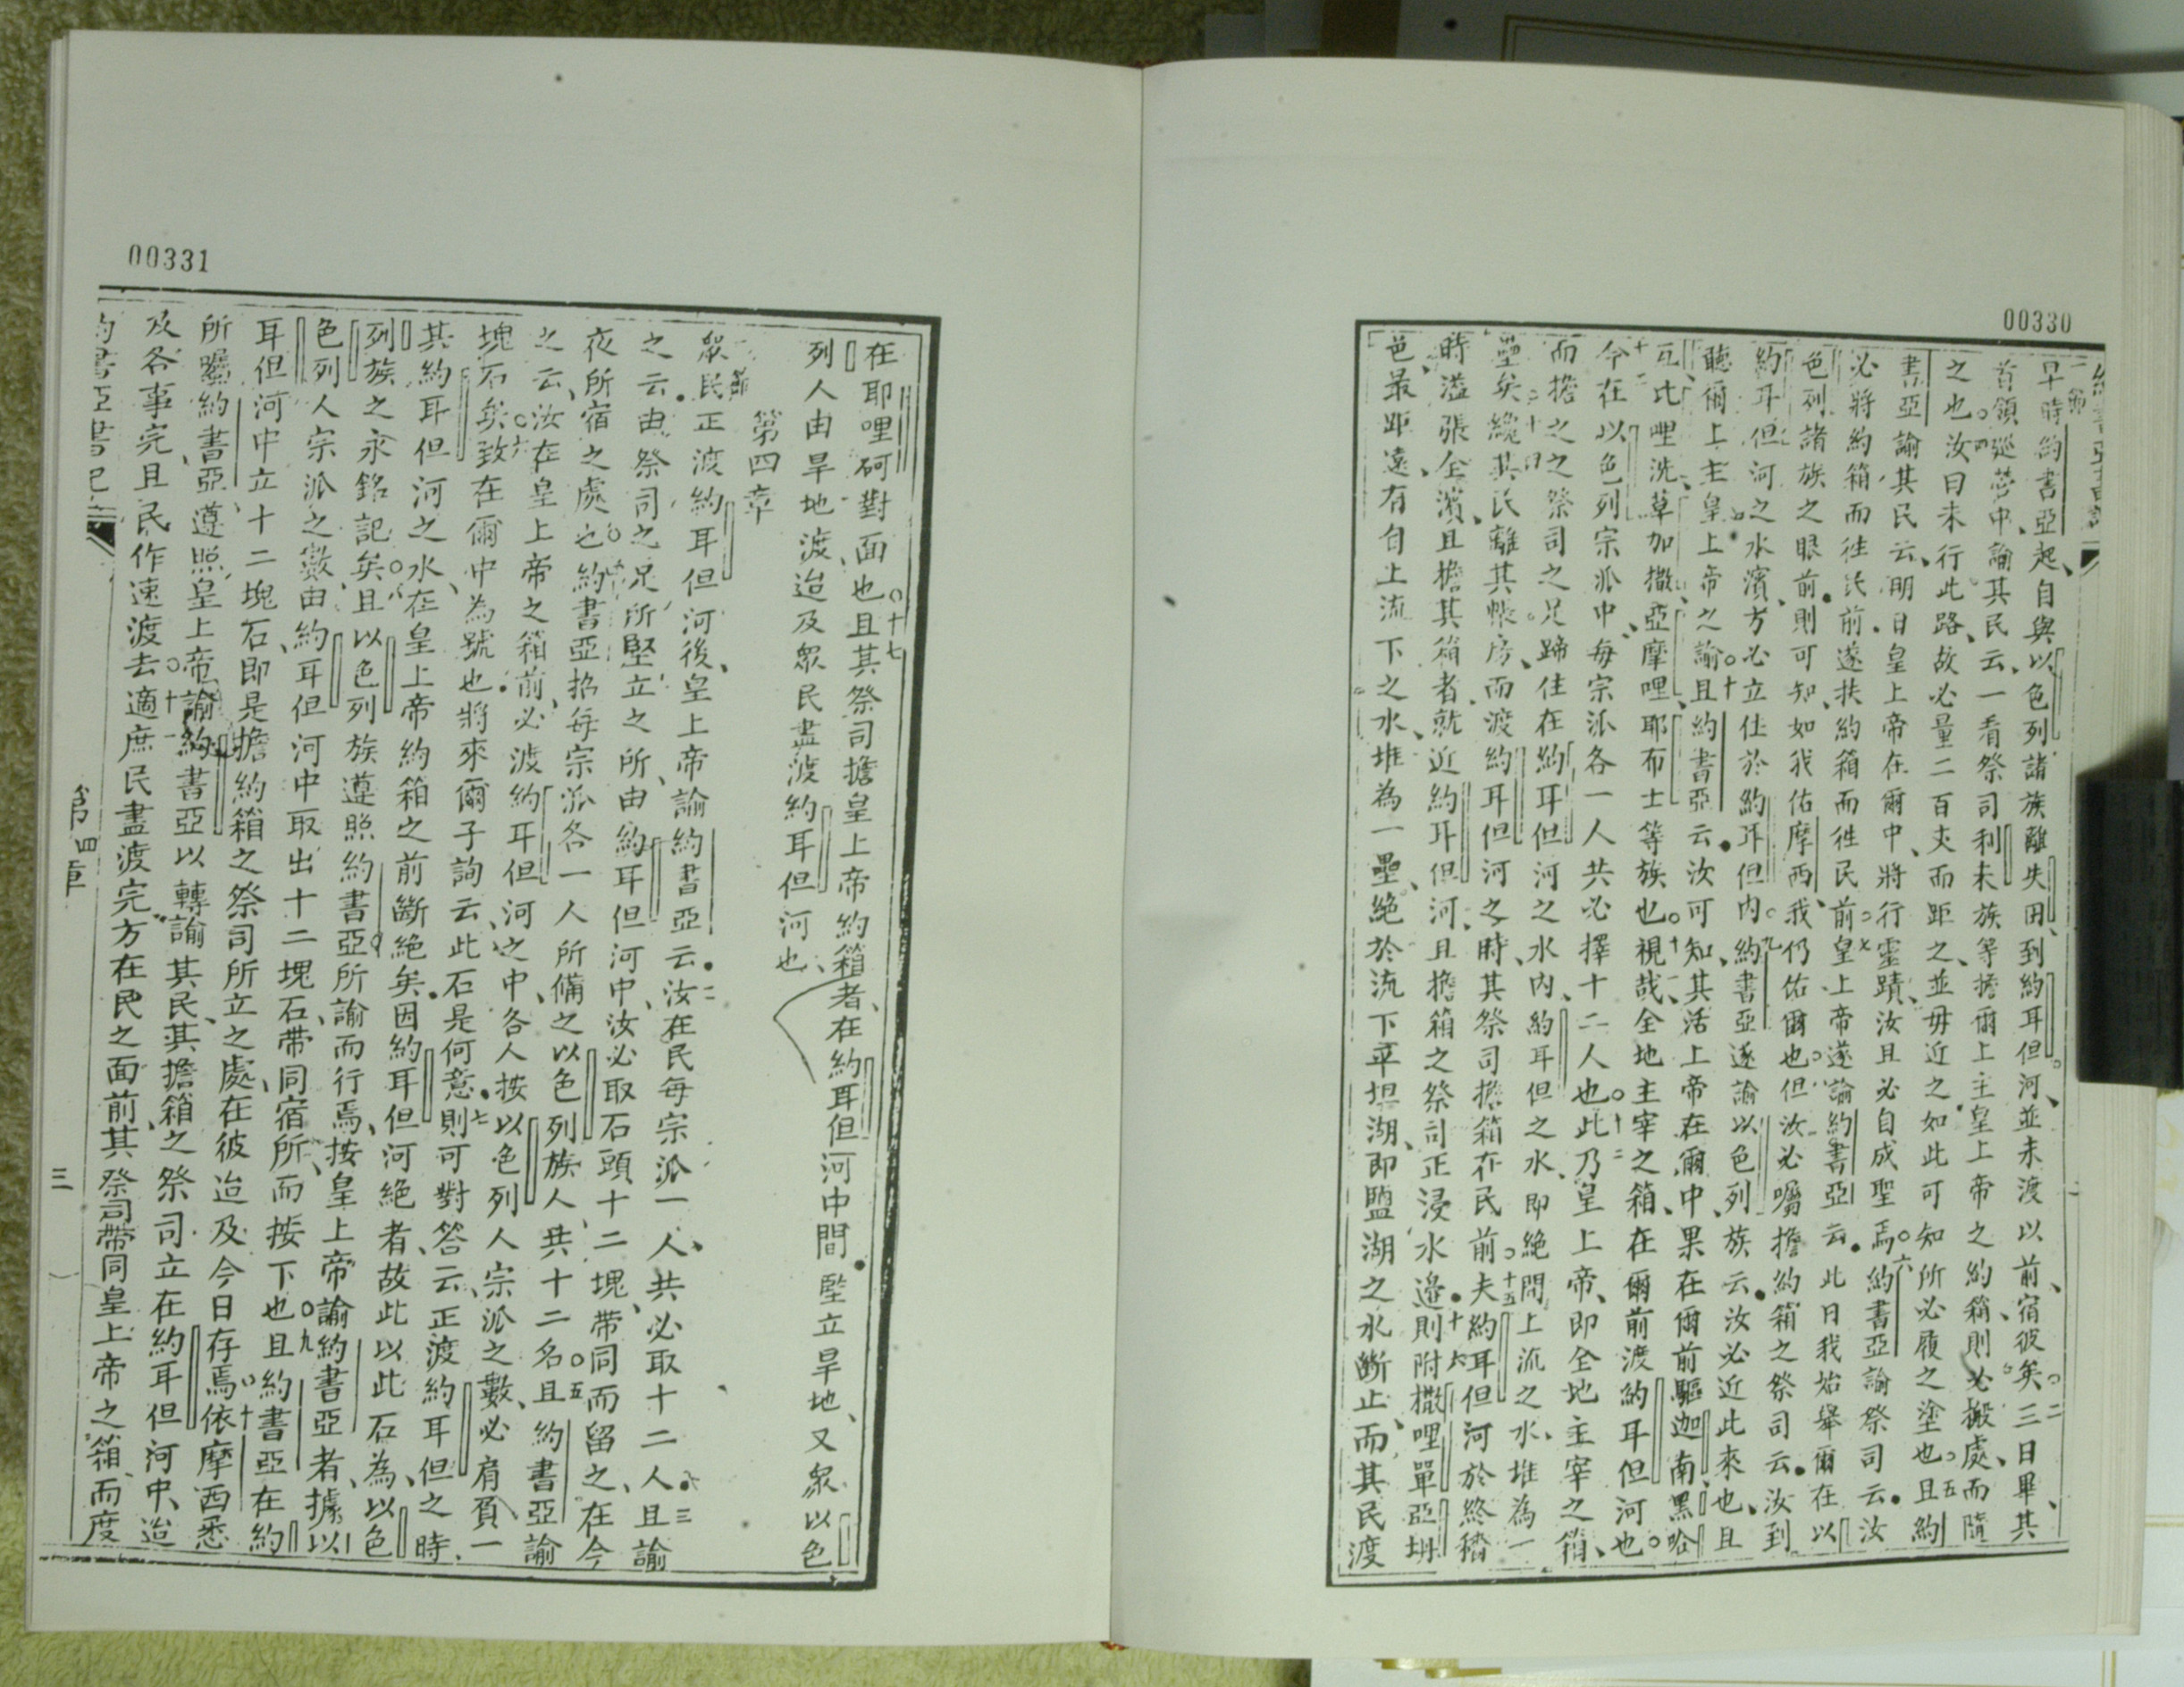 00330
早時約書亞起、自與以色列諸族離失田、到約耳但河、並未渡以前、宿彼矣○二三日畢、其
首領巡營中、諭其民云、一看祭司利未族等、擔爾上主皇上帝之約箱、則必搬處、而隨
之也○四汝曰未行此路、故必量二百丈而距之、並毋近之、如此可知所必履之塗也○五且約
書亞諭其民云、明日皇上帝在爾中、將行靈蹟、汝且必自成聖焉○六約書亞諭祭司云、汝
必將約箱而徃民前、遂扶約箱而徃民前○七皇上帝遂諭約書亞云、此日我始舉爾在以
色列諸族之眼前、則可知如我佑摩西、我仍佑爾也○八但汝必囑擔約箱之祭司云、汝到
約耳但河之水濱、方必立住於約耳但內○九約書亞遂諭以色列族云、汝必近此來也、且
聽爾上主皇上帝之諭○十且約書亞云、汝可知、其活上帝在爾中、果在爾前驅迦南、黑哈
瓦、比哩洗、革加撒、亞摩哩、耶布士等族也○十一視哉、全地主宰之箱、在爾前渡約耳但河也○
十二今在以色列宗派中、每宗派各一人、共必擇十二人也○十三此乃皇上帝、即全地主宰之箱、
而擔之之祭司之足蹄住在約耳但河之水內、約耳但之水、即絕開上流之水、堆為一
壘矣○十四纔其民離其帳房、而渡約耳但河之時、其祭司擔箱在民前○十五夫約耳但河於終穡
時溢張全濱、且擔其箱者就近約耳但河、且擔箱之祭司正浸水邉○十六則附撒哩單亞坍
邑最距遠、有自上流下之水、堆為一壘、絕於流下平坦湖、即鹽湖之水斷止、而其民渡
00331
在耶哩砢對面也○十七且其祭司擔皇上帝約箱者、在約耳但河中間、堅立旱地、又眾以色
列人由旱地渡、迨及眾民盡渡約耳但河也、
第四章
一節眾民正渡約耳但河後、皇上帝諭約書亞云、二汝在民每宗派一人、共必取十二人、三且諭
之云、由祭司之足所堅立之所、由約耳但河中、汝必取石頭十二塊、帶同而留之、在今
夜所宿之處也○四約書亞招每宗派各一人所備之以色列族人、共十二名○五且約書亞諭
之云、汝在皇上帝之箱前、必渡約耳但河之中、各人按以色列人宗派之數、必肩負一
塊石矣○六致在爾中為號也、將來爾子詢云、此石是何意、七則可對答云、正渡約耳但之時
其約耳但河之水、在皇上帝約箱之前斷絕矣、因約耳但河絕者、故此以此石為、以色
列族之永銘記矣○八且以色列族遵照約書亞所諭而行焉、按皇上帝諭約書亞者、據以
色列人宗派之數、由約耳但河中取出十二塊石、帶同宿所、而按下也○九且約書亞在約
耳但河中、立十二塊石、即是擔約箱之祭司所立之處、在彼迨及今日存焉○十依摩西悉
所囑約書亞、遵照皇上帝諭約書亞以轉諭其民、其擔箱之祭司立在約耳但河中、迨
及各事完、且民作速渡去○十一適庶民盡渡完、方在民之面前、其祭司帶同皇上帝之箱而度
約書亞書記
第四章
三